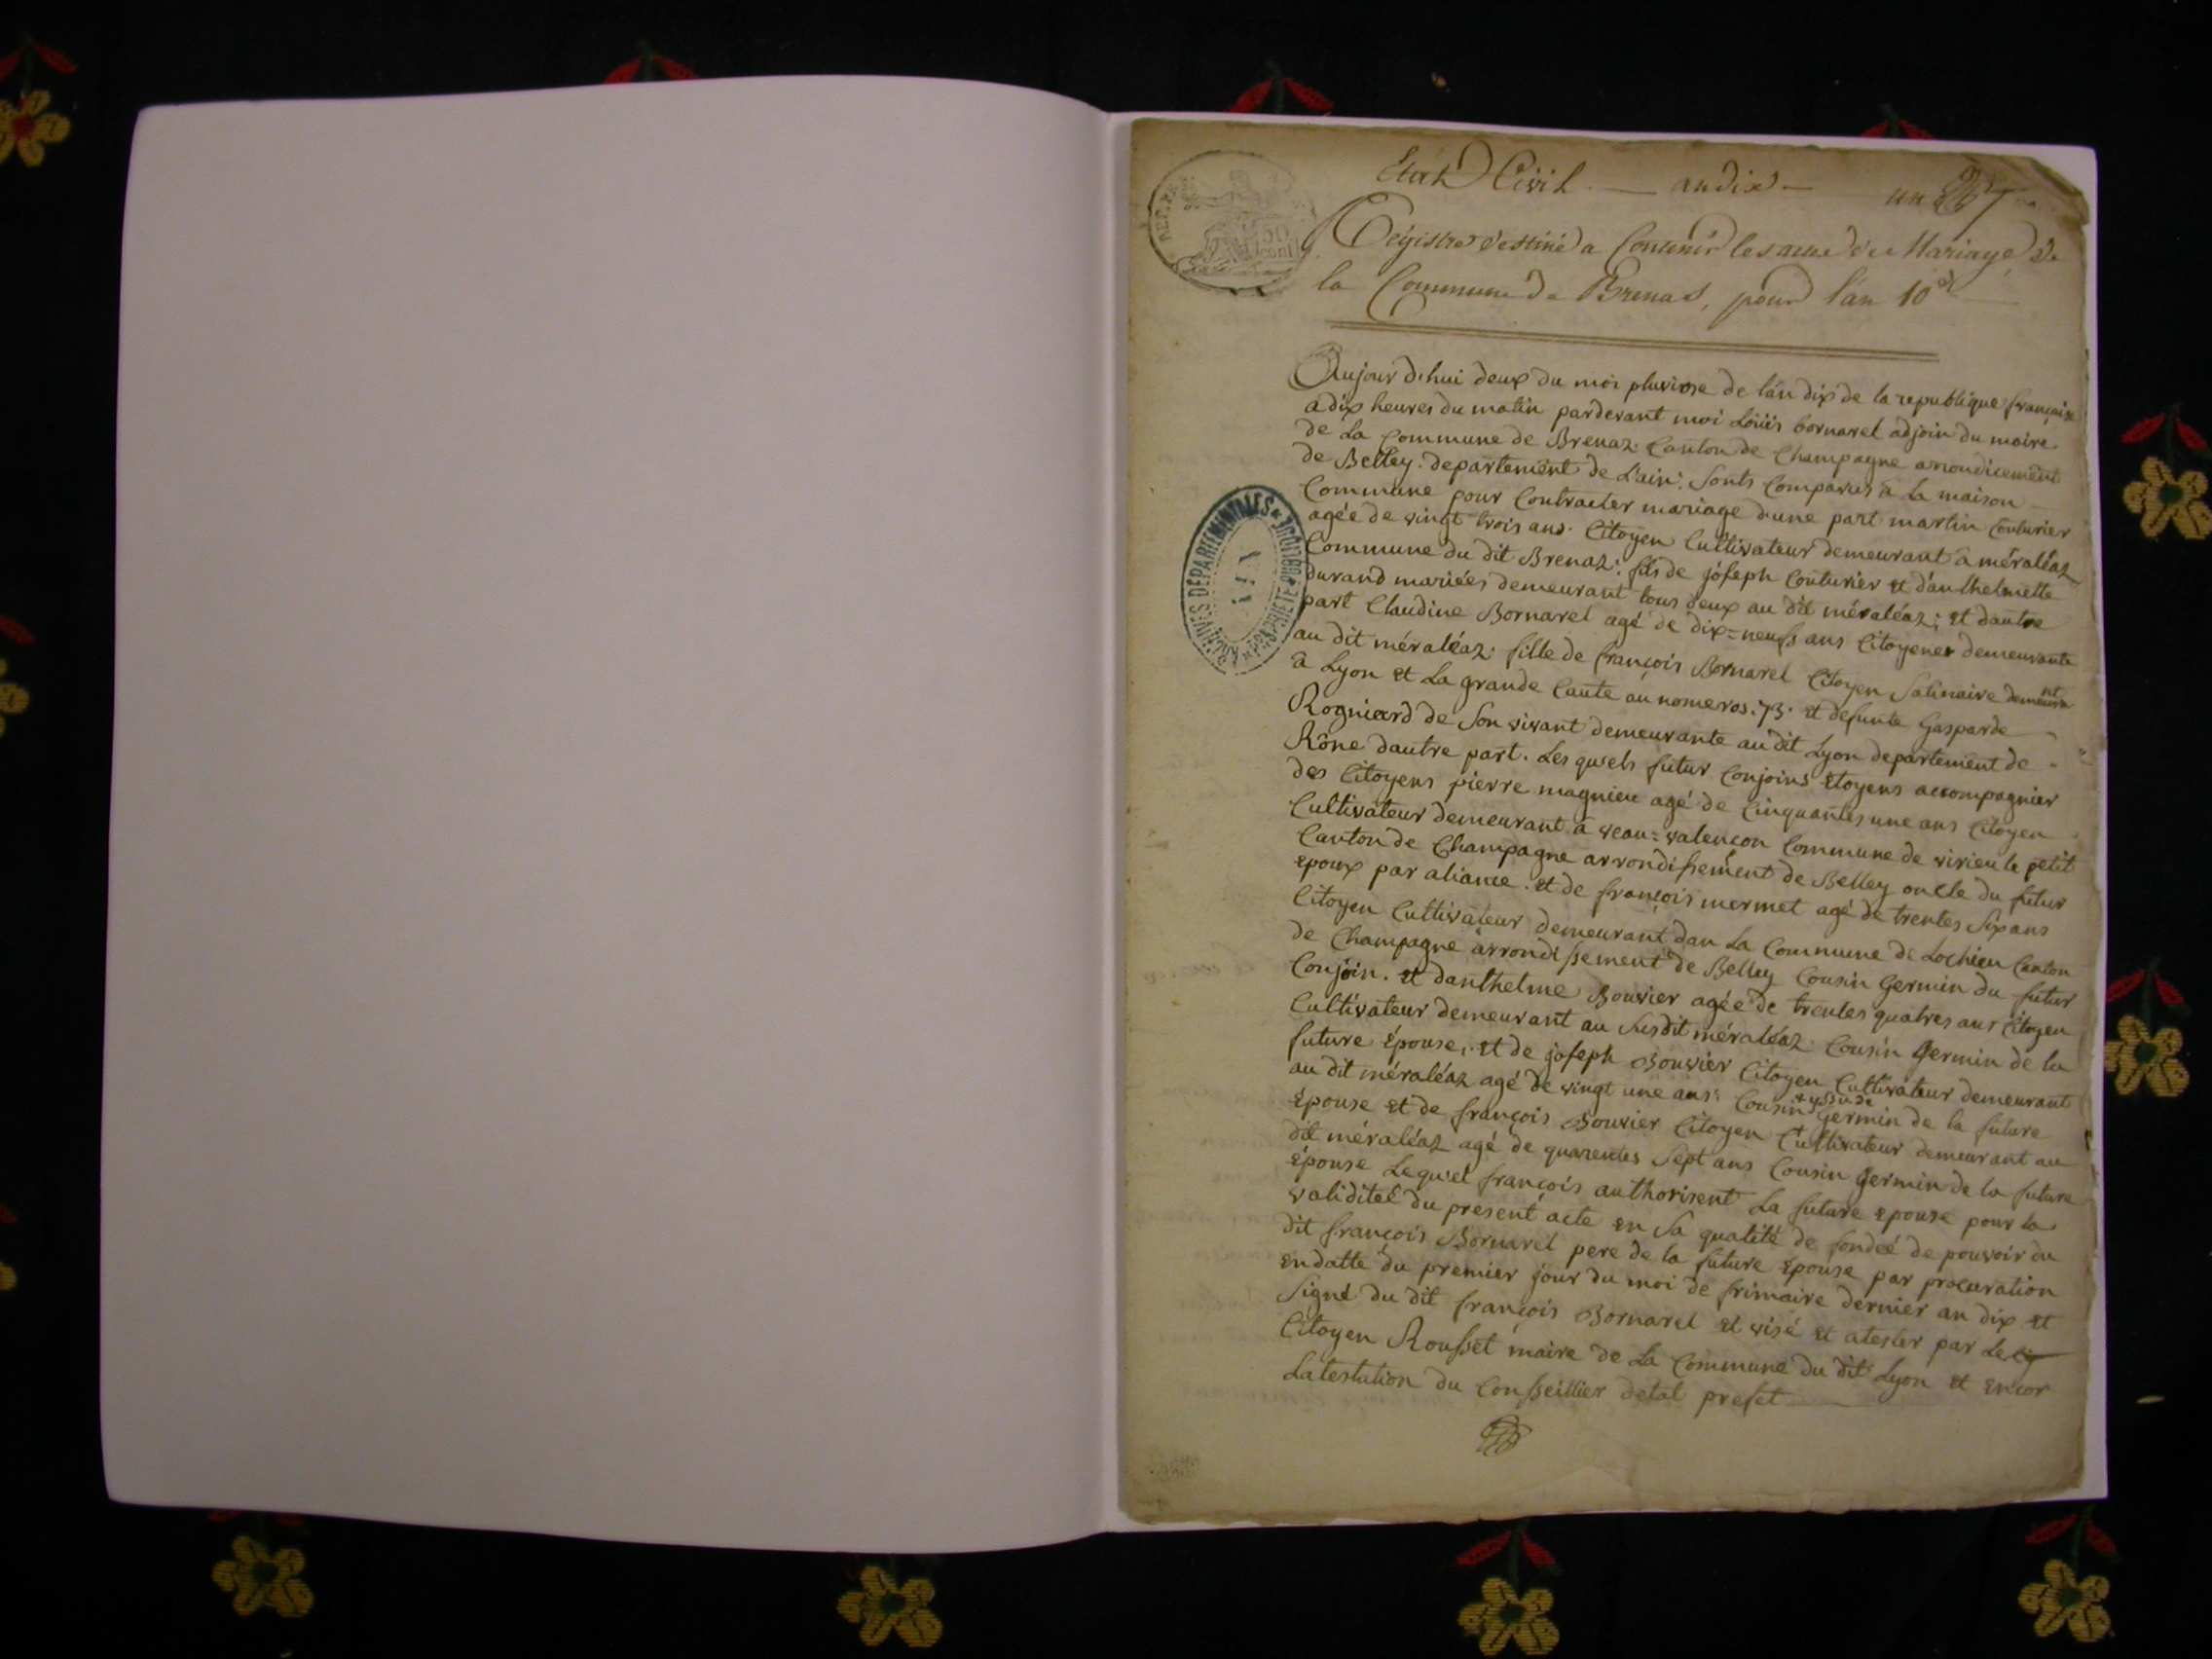 Etat Civil — an dix — un
Régistre destiné a Contenir les actes de Mariage de
la Commune de Brenas, pour l'an 10e
Aujour d'hui deux du moi pluviose de l'an dix de la republique française
a dix heures du matin pardevant moi Loüis bornarel adjoin du maire
de La Commune de Brenaz. Canton de Champagne arrondicement
de Belley. departement de L'ain. Sonts Comparus à la maison
Commune pour Contracter mariage dune part martin Couturier
agée de vingt trois ans. Citoyen Cultivateur demeurant à méraléaz
Commune du dit Brenaz. fils de joseph Couturier et d'anthelmette
durand mariées demeurant tous deux au dit méraléaz; et dautre
part Claudine Bornarel agé de dix=neufs ans Citoyenes demeurante
au dit méraléaz. fille de françois Bornarel Citoyen Salinaire demeurant
à Lyon et La grande Caute au nomeros. 73. et defunte Gasparde
Rogniard de Son vivant demeurante au dit Lyon departement de
Rône dautre part. Les quels futur Conjoins Etoyens accompagnier
des Citoyens pierre magnieu agé de Cinquantes une ans Citoyen
Cultivateur demeurant à veau=valençon Commune de virieu le petit
Canton de Champagne arrondissement de Belley oncle du futur
epoux par aliance. et de françois mermet agé de trentes Six ans
Citoyen Cultivateur demeurant dan La Commune de Lochieu Canton
de Champagne arrondissement de Belley Cousin Germin du futur
Conjoin. et danthelme Bouvier agée de trentes quatres ans Citoyen
Cultivateur demeurant au Susdit méraléaz Cousin Germin de la
future Épouse, et de joseph Bouvier Citoyen Cultivateur demeurant
au dit méraléaz agé de vingt une ans. Cousin + yssu de Germin de la future
Épouse et de françois Bouvier Citoyen Cultivateur demeurant au
dit méraléaz agé de quarentes Sept ans Cousin Germin de la future
épouse Lequel françois authorisent La future epouse pour la
validiteé du present acte en Sa qualité de fondeé de pouvoir du
dit françois Bornarel pere de la future Epouse par procuration
en datte du premier jour du moi de frimaire dernier an dix et
Signé du dit françois Bornarel et visé et atester par Le
Citoyen Rousset maire de La Commune du dit Lyon et encor
Latestation du Conseillier detat prefet
ARCHIVES DÉPARTEMENTALES
AIN
PROPRIÉTÉ PUBLIQUE
REP. FRA
50
cent